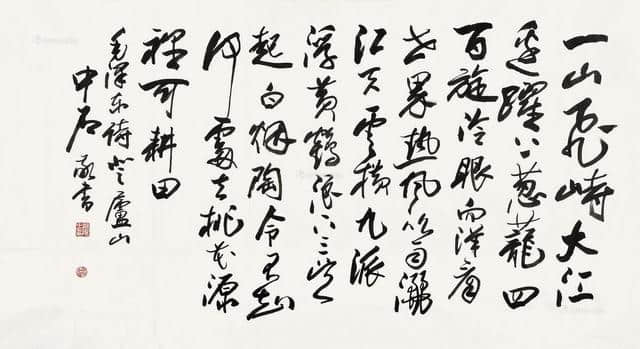 一山飛峙大江
邊躍上葱蘢四
百旋冷眼向洋看
世界熱風吹雨灑
江天雲橫九派
浮黃鶴浪下三吳
起白烟陶令不知
何處去桃花源
裡可耕田
毛澤東詩登廬山
中石敬書